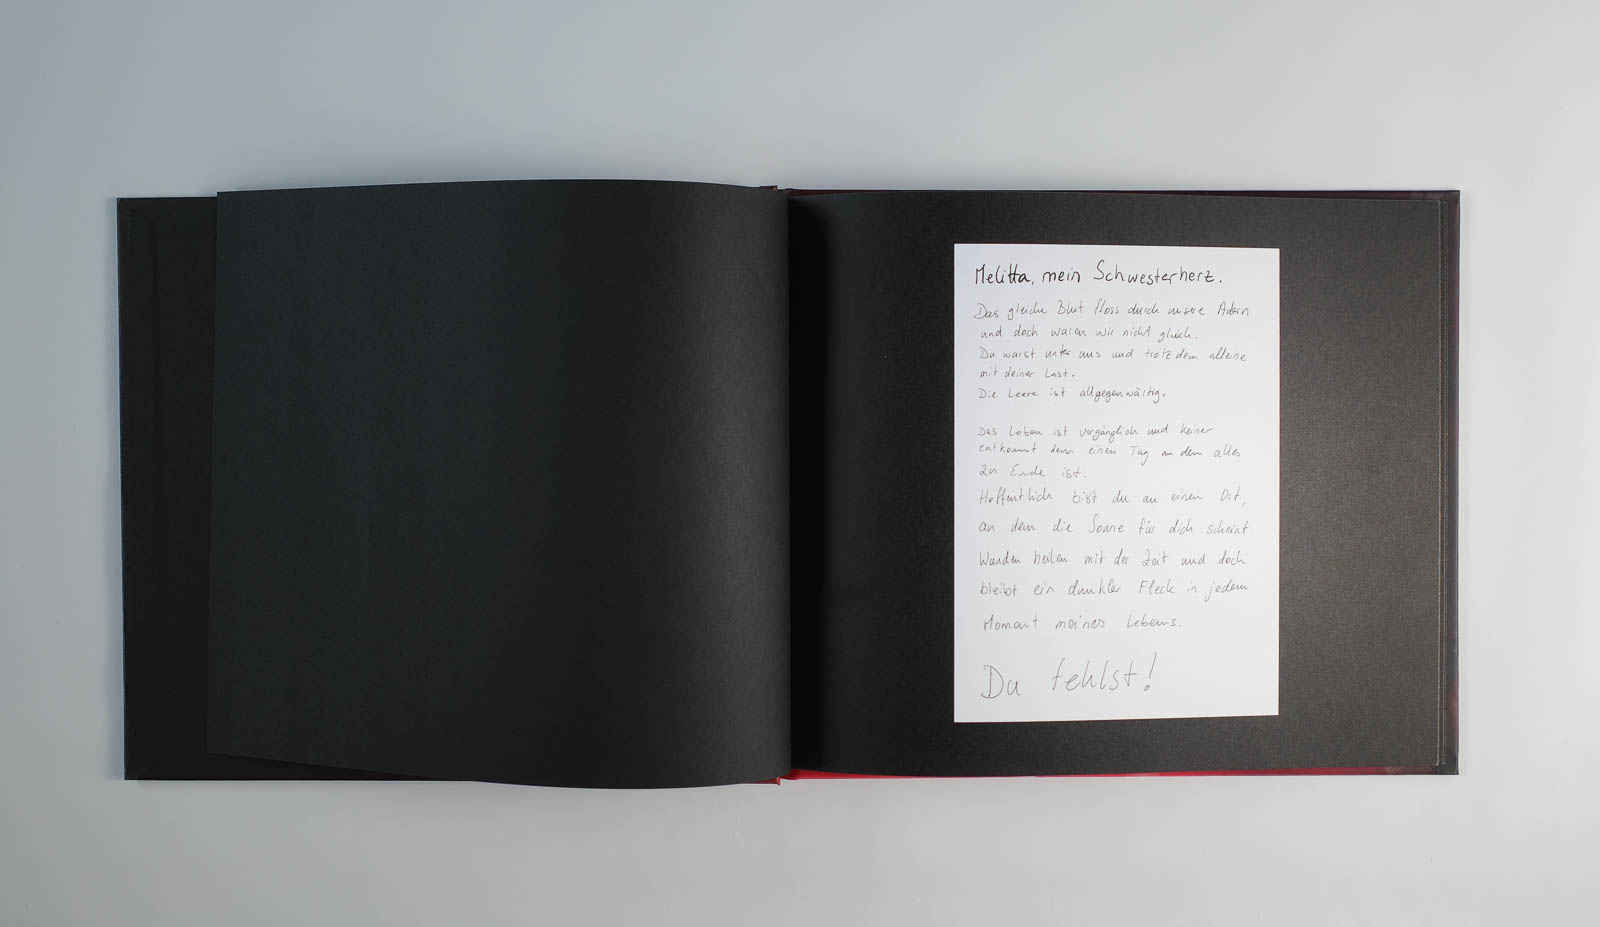 Melitta, mein Schwesterherz.
Das gleiche Blut floss durch unsere Adern
und doch waren wir nicht gleich.
Du warst unter uns und trotzdem alleine
mit deiner Last.
Die Leere ist allgegenwärtig.
Das Leben ist vergänglich und keiner
entkommt dem einen Tag an dem alles
zu Ende ist.
Hoffentlich bist du an einem Ort,
an dem die Sonne für dich scheint.
Wunden heilen mit der Zeit und doch
bleibt ein dunkler Fleck in jedem
Moment meines Lebens.
Du fehlst!